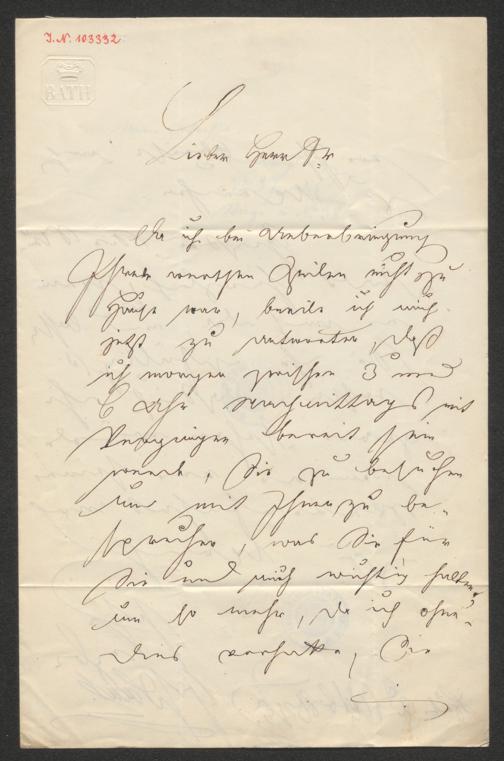 J.N. 103332
BATH
Lieber Herr Dr
Da ich bei Ueberbringung
Ihrer werthen Zeilen nicht zu
Hause war, beeile ich mich
jetzt zu antworten, daß
ich morgen zwischen 3 und
6 Uhr Nachmittags mit
Vergnügen bereit sein
werde, Sie zu besuchen
um mit Ihnen zu be-
sprechen, was Sie für
Sie und mich wichtig halten,
um so mehr, da ich ohne-
dies vorhatte, Sie